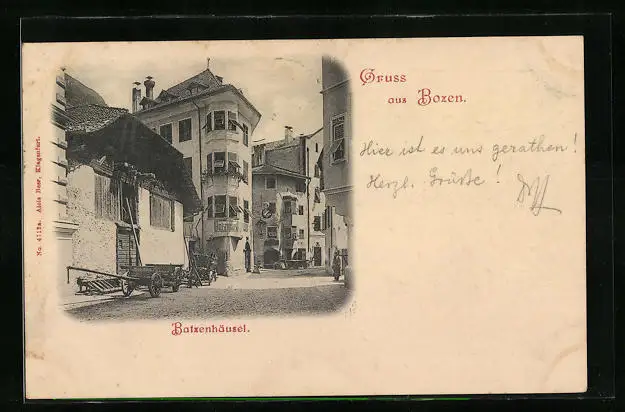 Gruss
aus Bozen.
Hier ist es uns gerathen!
Herzl. Grüße!
Batzenhäusel.
No. 4712a. Alois Beer, Klagenfurt.